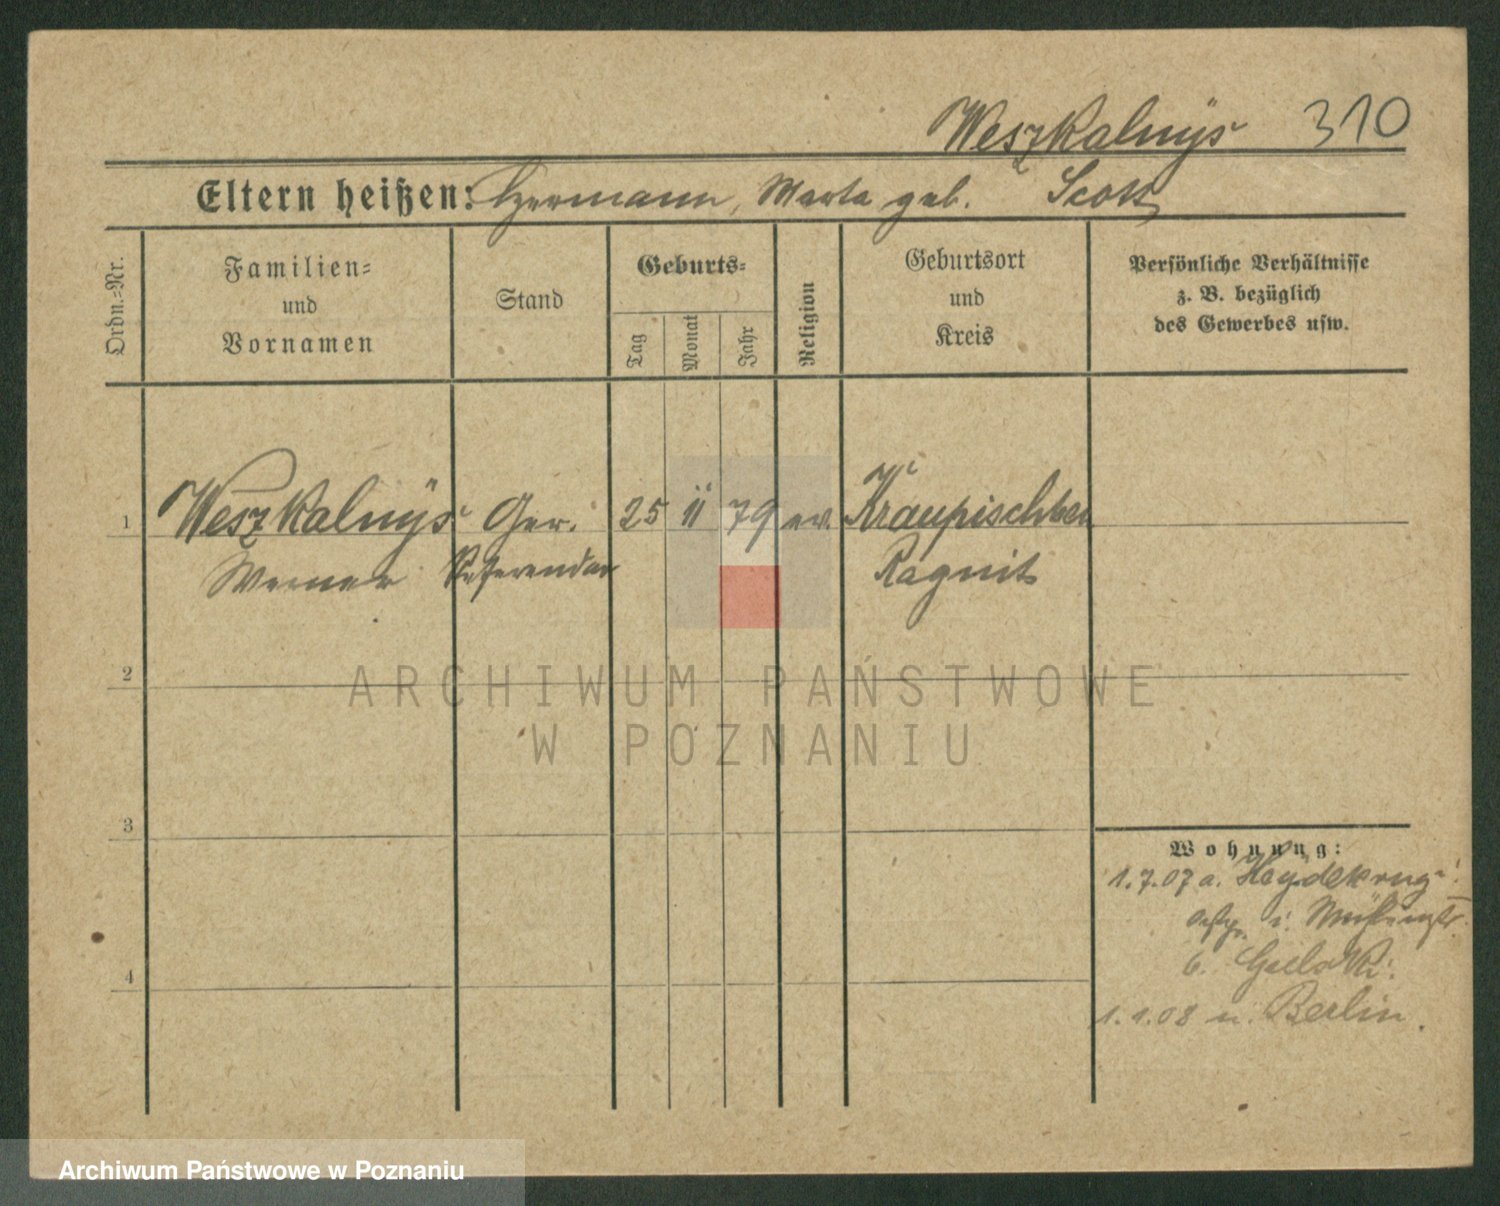 Weszkalnÿs 310
Eltern heißen: Hermann, Marta geb. Scott
Ordn.-Nr.
Familien- und Vornamen
Stand
Geburts-
Tag Monat Jahr
Religion
Geburtsort und Kreis
Persönliche Verhältnisse
z. B. bezüglich
des Gewerbes usw.
1 Weszkalnÿs Ger. 25 11 79 ev. Kraupischken
Werner Referendar Ragnit
2
ARCHIWUM PAŃSTWOWE
W POZNANIU
3
Wohnung:
1.7.07 a. Heydekrug
Ostpr. i.
6.
4
1.1.08 n. Berlin.
Archiwum Państwowe w Poznaniu